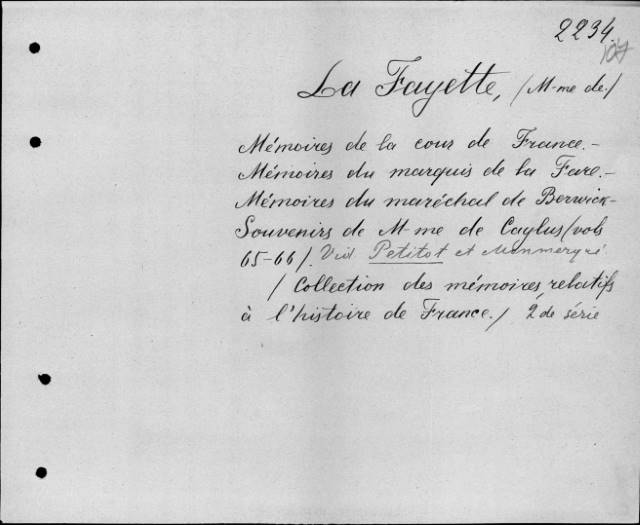 2234.
107
La Fayette, /M-me de/
Mémoires de la cour de France.-
Mémoires du marquis de la Fare.-
Mémoires du maréchal de Berwick-
Souvenirs de M-me de Caylus/vols
65-66/. Vid Petitot et Monmerqué
/Collection des mémoires relatifs
à l'histoire de France./ 2de série